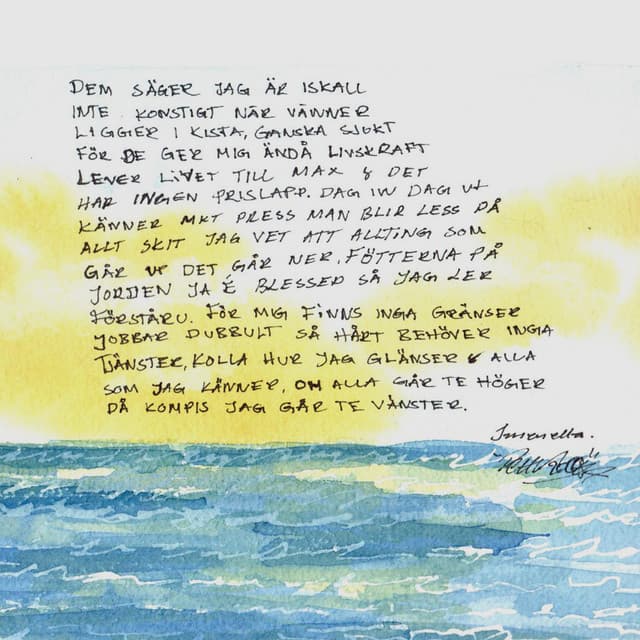 DEM SÄGER JAG ÄR ISKALL
INTE KONSTIGT NÄR VÄNNER
LIGGER I KISTA, GANSKA SJUKT
FÖR DE GER MIG ÄNDÅ LIVSKRAFT
LEVER LIVET TILL MAX & DET
HAR INGEN PRISLAPP. DAG IN DAG UT
KÄNNER MKT PRESS MAN BLIR LESS PÅ
ALLT SKIT JAG VET ATT ALLTING SOM
GÅR UP DET GÅR NER. FÖTTERNA PÅ
JORDEN JA É BLESSED SÅ JAG LER
FÖRSTÅRU. FÖR MIG FINNS INGA GRÄNSER
JOBBAR DUBBULT SÅ HÅRT BEHÖVER INGA
TJÄNSTER, KOLLA HUR JAG GLÄNSER & ALLA
SOM JAG KÄNNER, OM ALLA GÅR TE HÖGER
DÅ KOMPIS JAG GÅR TE VÄNSTER.